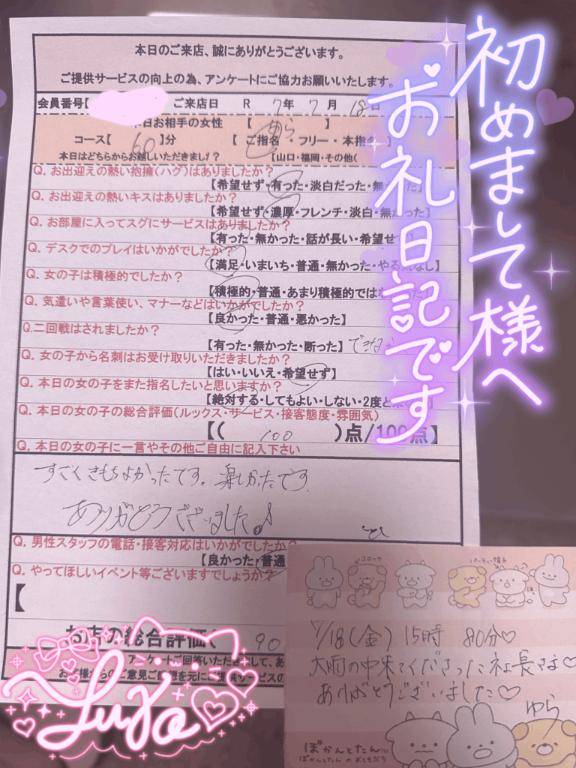 本日のご来店、誠にありがとうございます。
ご提供サービスの向上の為、アンケートにご協力お願いいたします。
会員番号【 ご来店日 R 7年 7月 18日
本日お相手の女性 【 ゆら
コース【 60 】分 【ご指名・フリー・本指名
本日はどちらからお越しいただきまし? 【山口・福岡・その他(
Q. お出迎えの熱い抱擁(ハグ)はありましたか?
【希望せず・有った・淡白だった・無
Q. お出迎えの熱いキスはありましたか?
【希望せず・濃厚・フレンチ・淡白・無
Q. お部屋に入ってスグにサービスはありましたか?
【有った・無かった・話が長い・希望せ
Q. デスクでのプレイはいかがでしたか?
【満足・いまいち・普通・無かった・やる なし】
Q. 女の子は積極的でしたか?
【積極的・普通・あまり積極的では
Q. 気遣いや言葉使い、マナーなどはいかがでしたか?
【良かった・普通・悪かった】
Q. 二回戦はされましたか?
【有った・無かった・断った】
Q. 女の子から名刺はお受け取りいただきましたか?
【はい・いいえ・希望せず】
Q. 本日の女の子をまた指名したいと思いますか?
【絶対する・してもよい・しない・2度と
Q. 本日の女の子の総合評価(ルックス・サービス・接客態度・雰囲気)
【( 100 )点/100点】
Q. 本日の女の子に一言やその他ご自由に記入下さい
すごくきもちよかったです。楽しかったです
ありがとうございました♪
Q. 男性スタッフの電話・接客対応はいかがでしたか?
【良かった・普通
Q. やってほしいイベント等ございますでしょうか?
【
お店の総合評価( 90
アンケートご回答いただきまして、あ
お客様からのご意見ご感想を元にご提供サービスの
初めまして様へ
お礼日記です
7/18(金) 15時 80分♡
大雨の中来てくださった社長さま♡
ありがとうございました♡
ゆら
ぽかんとたん
Yura